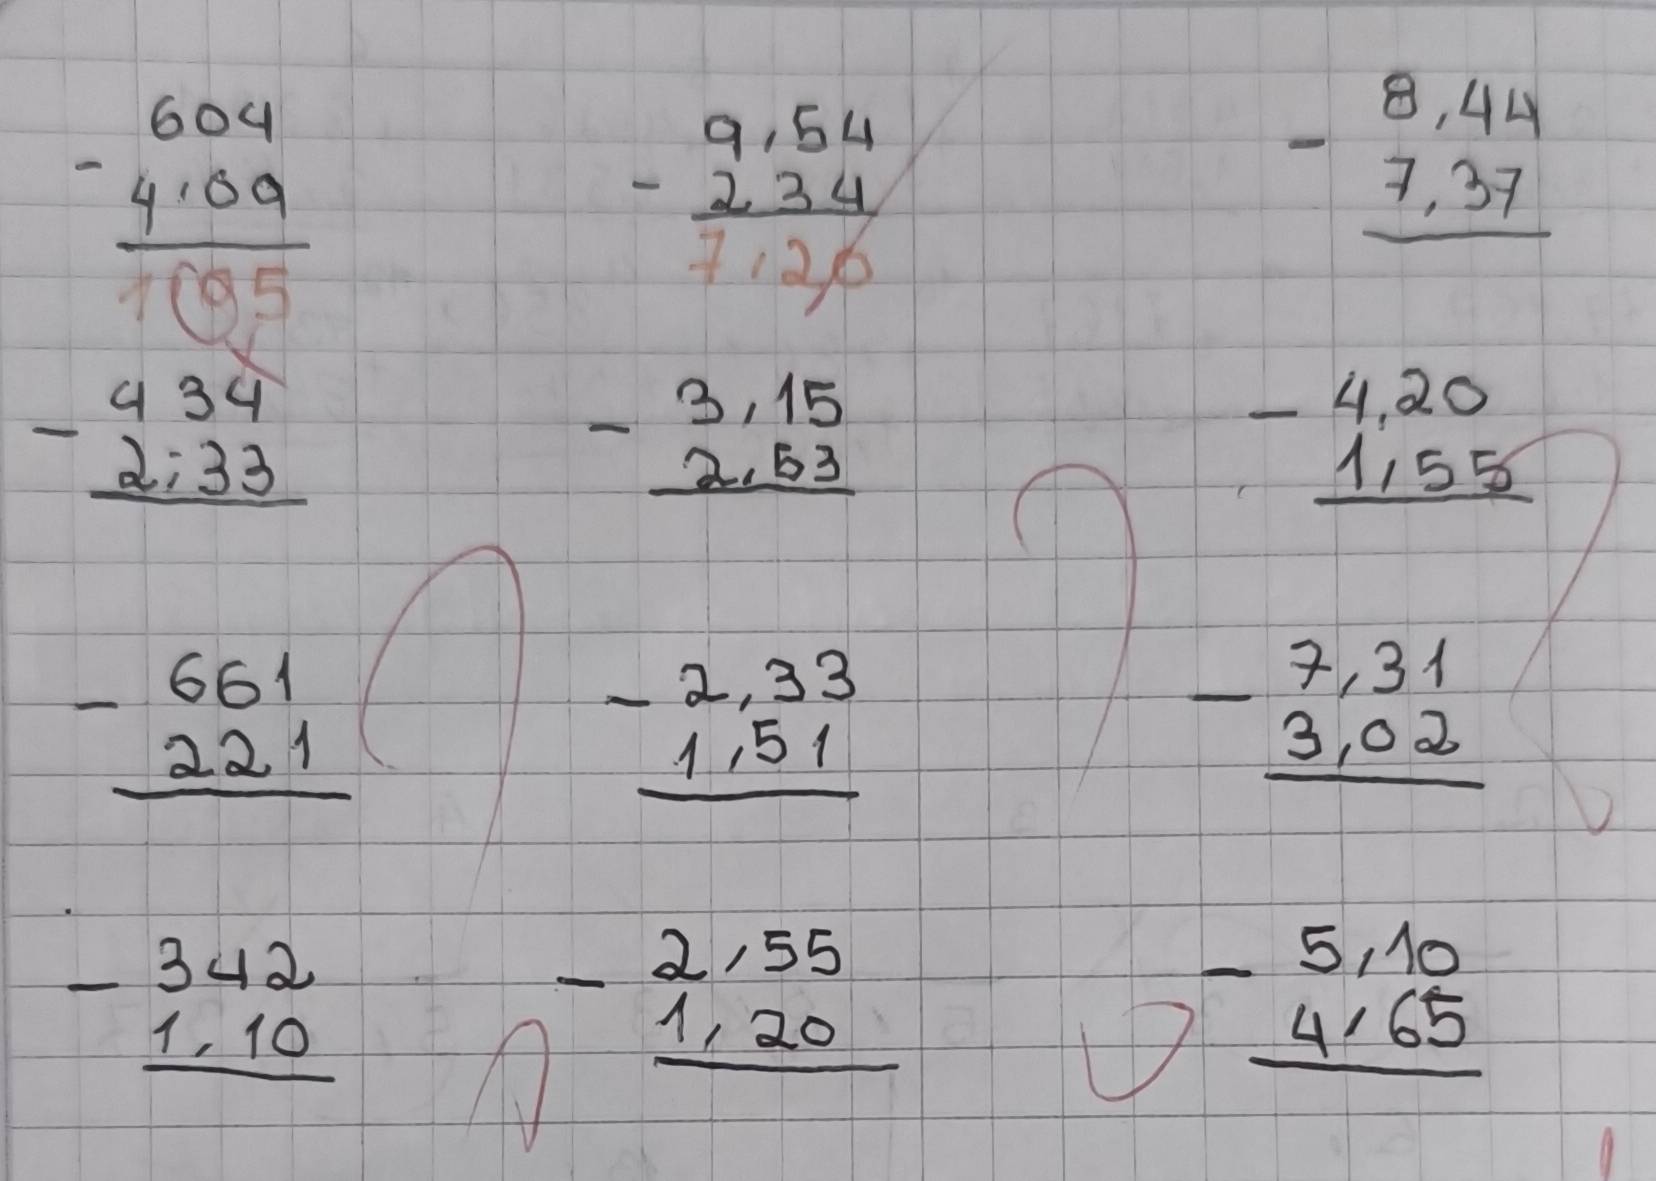 604 9,54 8,44
- 4,09 - 234 - 7,37
195 7,20
434 3,15 4,20
- 2,33 - 2,53 - 1,55
661 2,33 7,31
- 221 - 1,51 - 3,02
342 2,55 5,10
- 1,10 - 1,20 - 4,65